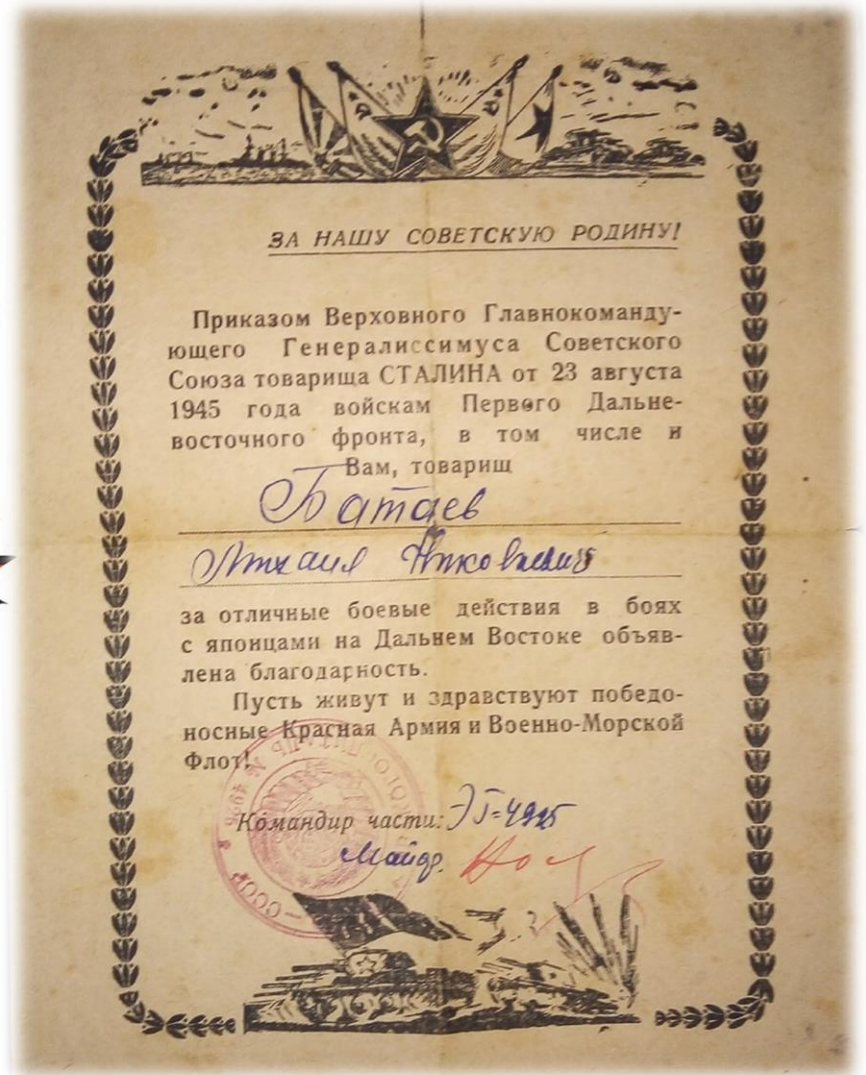 ЗА НАШУ СОВЕТСКУЮ РОДИНУ!
Приказом Верховного Главнокоманду-
ющего Генералиссимуса Советского
Союза товарища СТАЛИНА от 23 августа
1945 года войскам Первого Дальне-
восточного фронта, в том числе и
Вам, товарищ
Батаев
Михаил
за отличные боевые действия в боях
с японцами на Дальнем Востоке объяв-
лена благодарность.
Пусть живут и здравствуют победо-
носные Красная Армия и Военно-Морской
Флот!
Командир части: ЭГ-4925
Майор
СССР